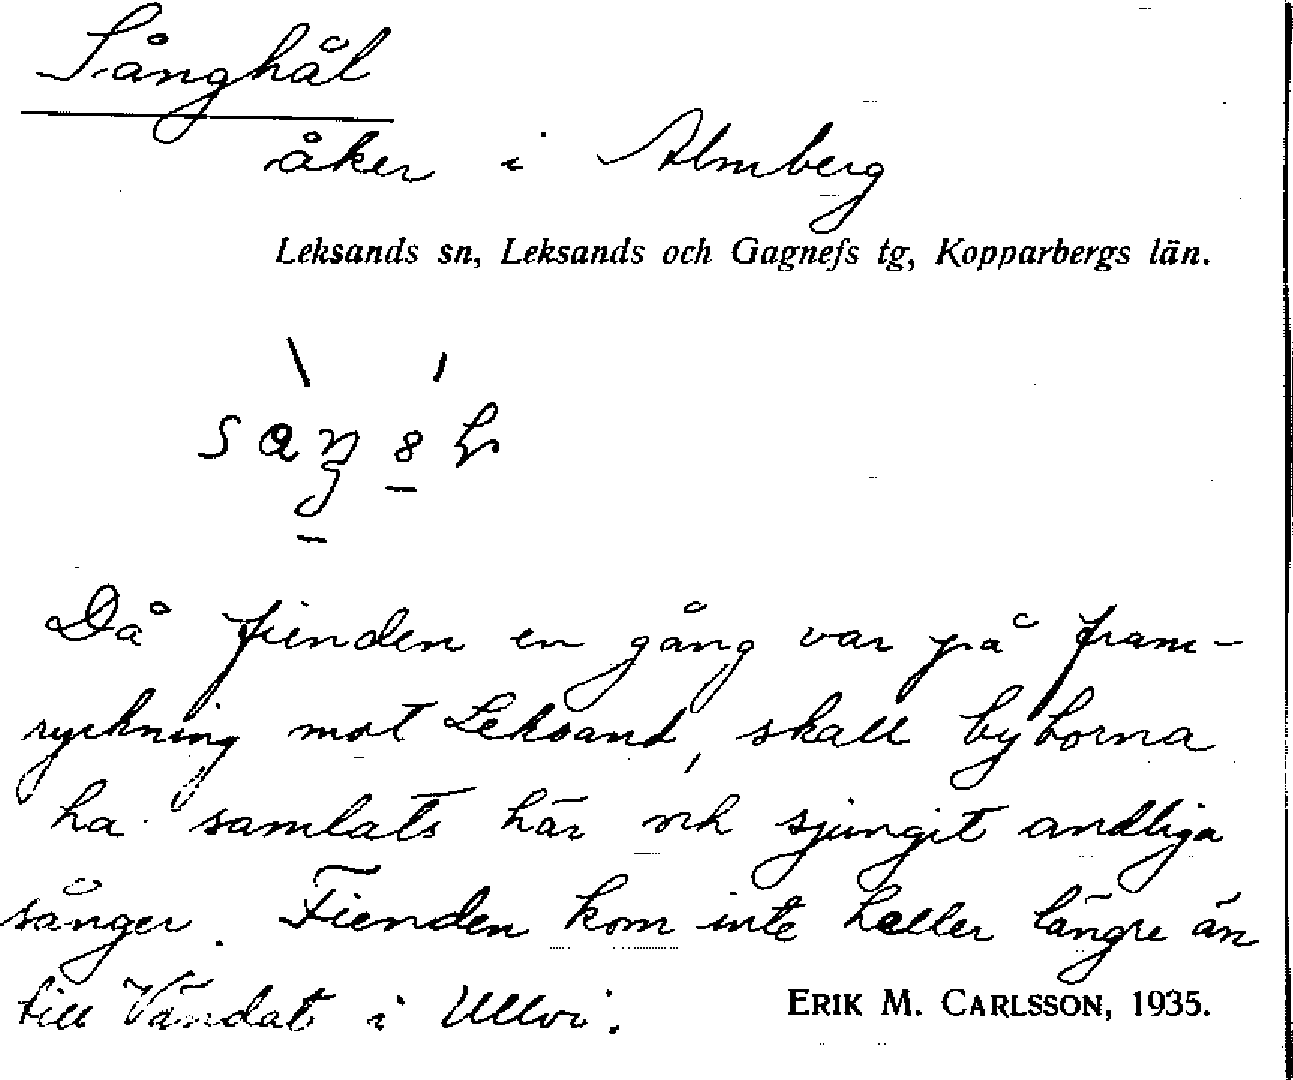 Sånghål
åker i Almberg
Leksands sn, Leksands och Gagnefs tg, Kopparbergs län.
Då fienden en gång var på fram-
ryckning mot Leksand, skall byborna
ha samlats här och sjungit andliga
sånger. Fienden kom inte heller längre än
till Vändat i Ullvi.
ERIK M. CARLSSON, 1935.